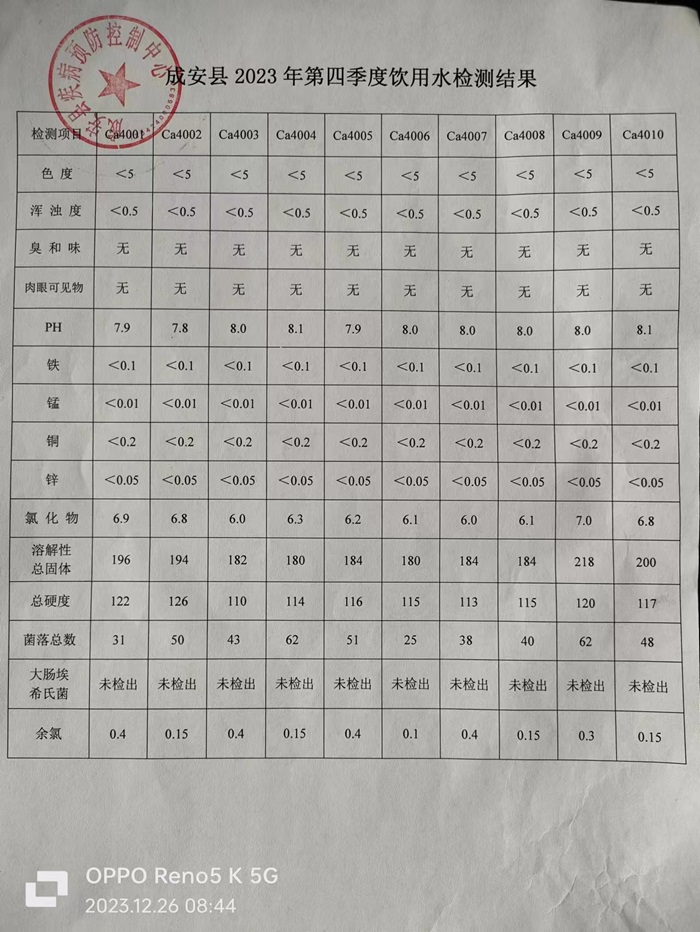 成安县疾病预防控制中心
成安县 2023 年第四季度饮用水检测结果
检测项目 Ca4001 Ca4002 Ca4003 Ca4004 Ca4005 Ca4006 Ca4007 Ca4008 Ca4009 Ca4010
色 度 <5 <5 <5 <5 <5 <5 <5 <5 <5 <5
浑 浊 度 <0.5 <0.5 <0.5 <0.5 <0.5 <0.5 <0.5 <0.5 <0.5 <0.5
臭 和 味 无 无 无 无 无 无 无 无 无 无
肉眼可见物 无 无 无 无 无 无 无 无 无 无
PH 7.9 7.8 8.0 8.1 7.9 8.0 8.0 8.0 8.0 8.1
铁 <0.1 <0.1 <0.1 <0.1 <0.1 <0.1 <0.1 <0.1 <0.1 <0.1
锰 <0.01 <0.01 <0.01 <0.01 <0.01 <0.01 <0.01 <0.01 <0.01 <0.01
铜 <0.2 <0.2 <0.2 <0.2 <0.2 <0.2 <0.2 <0.2 <0.2 <0.2
锌 <0.05 <0.05 <0.05 <0.05 <0.05 <0.05 <0.05 <0.05 <0.05 <0.05
氯 化 物 6.9 6.8 6.0 6.3 6.2 6.1 6.0 6.1 7.0 6.8
溶解性
总固体 196 194 182 180 184 180 184 184 218 200
总硬度 122 126 110 114 116 115 113 115 120 117
菌落总数 31 50 43 62 51 25 38 40 62 48
大肠埃
希氏菌 未检出 未检出 未检出 未检出 未检出 未检出 未检出 未检出 未检出 未检出
余氯 0.4 0.15 0.4 0.15 0.4 0.1 0.4 0.15 0.3 0.15
OPPO Reno5 K 5G
2023.12.26 08:44